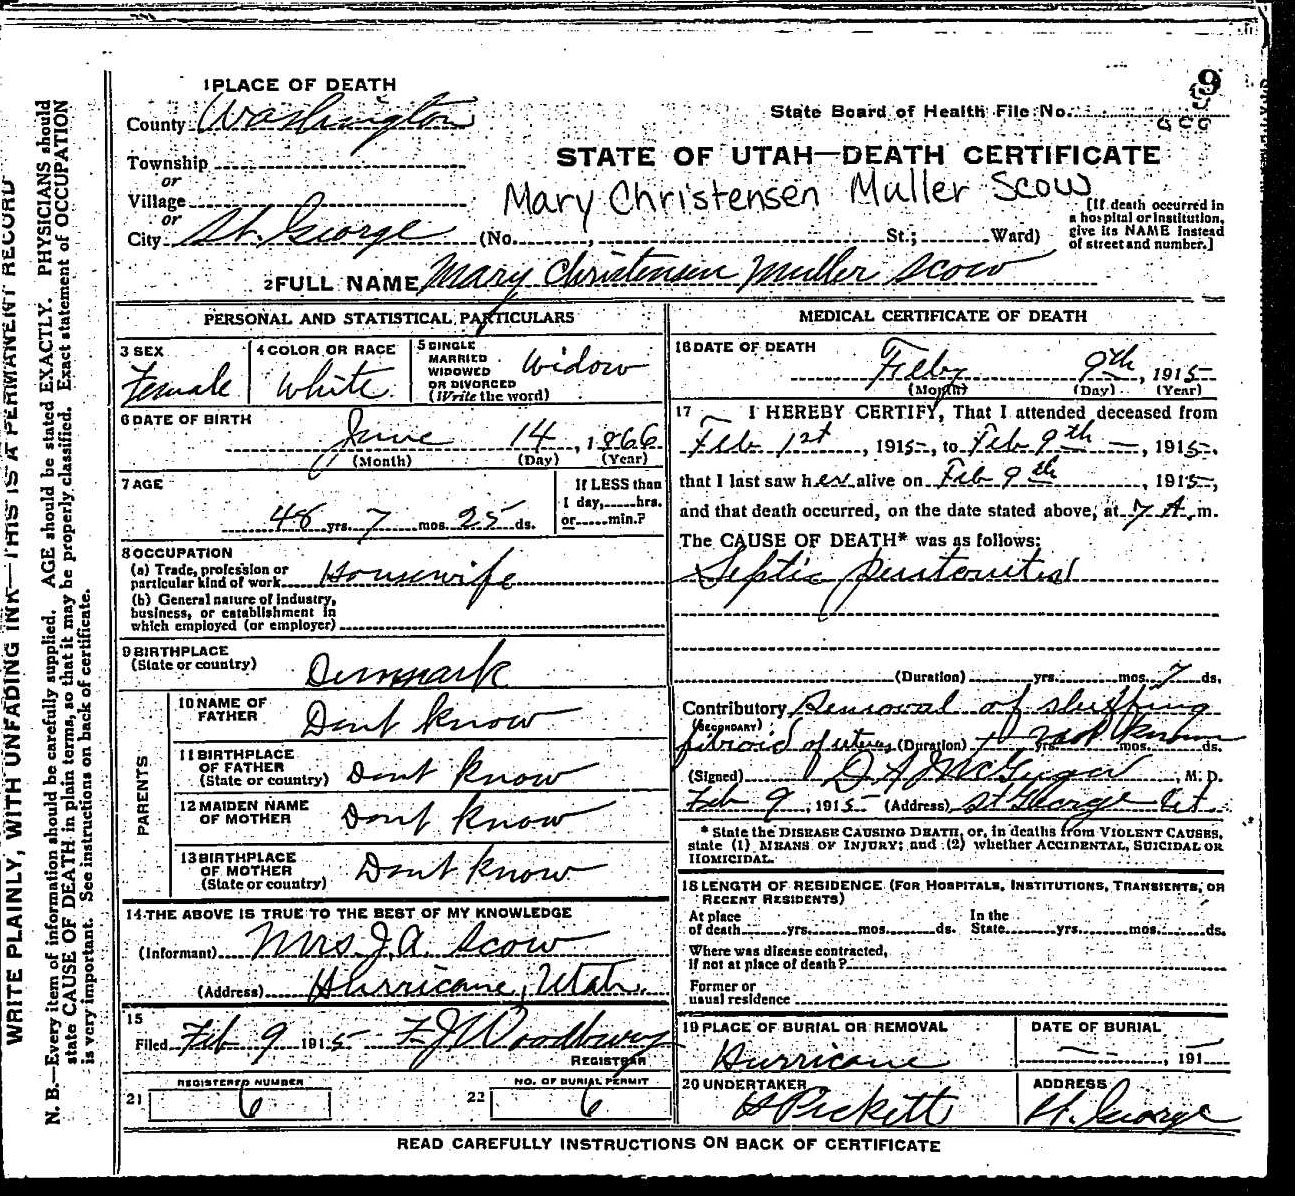 WRITE PLAINLY, WITH UNFADING INK—THIS IS A PERMANENT RECORD
N. B.—Every item of information should be carefully supplied. AGE should be stated EXACTLY. PHYSICIANS should
state CAUSE OF DEATH in plain terms, so that it may be properly classified. Exact statement of OCCUPATION
is very important. See instructions on back of certificate.
9
1 PLACE OF DEATH
County Washington
State Board of Health File No.
Township
or
Village
or
City St. George
STATE OF UTAH—DEATH CERTIFICATE
Mary Christensen Muller Scow
(No. , St.; Ward)
[If death occurred in
a hospital or institution,
give its NAME instead
of street and number.]
2 FULL NAME Mary Christensen Muller Scow
PERSONAL AND STATISTICAL PARTICULARS
3 SEX
Female
4 COLOR OR RACE
White
5 SINGLE
MARRIED
WIDOWED
OR DIVORCED
(Write the word)
Widow
6 DATE OF BIRTH
June 14, 1866
(Month) (Day) (Year)
7 AGE
48 yrs. 7 mos. 25 ds.
If LESS than
1 day, hrs.
or min.?
8 OCCUPATION
(a) Trade, profession or
particular kind of work Housewife
(b) General nature of industry,
business, or establishment in
which employed (or employer)
9 BIRTHPLACE
(State or country)
Denmark
PARENTS
10 NAME OF
FATHER
Dont know
11 BIRTHPLACE
OF FATHER
(State or country) Dont know
12 MAIDEN NAME
OF MOTHER Dont know
13 BIRTHPLACE
OF MOTHER
(State or country) Dont know
14 THE ABOVE IS TRUE TO THE BEST OF MY KNOWLEDGE
(Informant) Mrs J. A. Scow
(Address) Hurricane, Utah.
15
Filed Feb 9 1915 F J Woodbury
REGISTRAR
21
REGISTERED NUMBER
6
22
NO. OF BURIAL PERMIT
6
MEDICAL CERTIFICATE OF DEATH
16 DATE OF DEATH
Feby 9th, 1915
(Month) (Day) (Year)
17 I HEREBY CERTIFY, That I attended deceased from
Feb 1st, 1915, to Feb 9th, 1915,
that I last saw her alive on Feb 9th, 1915,
and that death occurred, on the date stated above, at 7 A. m.
The CAUSE OF DEATH* was as follows:
Septic peritonitis
(Duration) yrs. mos. 7 ds.
Contributory Removal of sluffing
(SECONDARY)
fibroid of uterus (Duration) yrs. not known mos. ds.
(Signed) D A McGregor, M. D.
Feb 9, 1915 (Address) St George Ut.
* State the DISEASE CAUSING DEATH, or, in deaths from VIOLENT CAUSES,
state (1) MEANS OF INJURY; and (2) whether ACCIDENTAL, SUICIDAL OR
HOMICIDAL.
18 LENGTH OF RESIDENCE (FOR HOSPITALS, INSTITUTIONS, TRANSIENTS, OR
RECENT RESIDENTS)
At place
of death yrs. mos. ds.
In the
State yrs. mos. ds.
Where was disease contracted,
if not at place of death?
Former or
usual residence
19 PLACE OF BURIAL OR REMOVAL
Hurricane
DATE OF BURIAL
, 191
20 UNDERTAKER
H Pickett
ADDRESS
St. George
READ CAREFULLY INSTRUCTIONS ON BACK OF CERTIFICATE